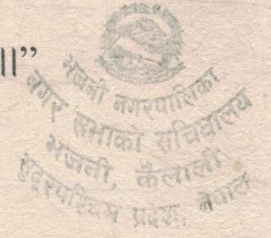 ॥”
भजनी नगरपालिका
नगर सभाको सचिवालय
भजनी, कैलाली
सुदूरपश्चिम प्रदेश, नेपाल